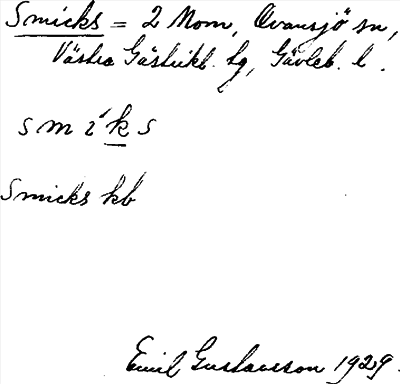 Smicks = 2 Mom, Ovansjö sn,
Västra Gästrikl. tg, Gävleb. l.
s m i´ k s
Smicks kb
Emil Gustavsson 1929.